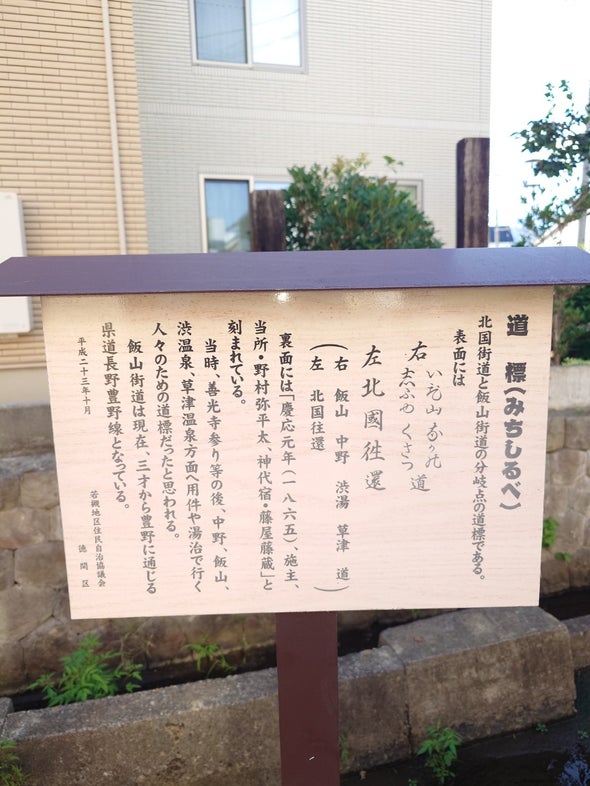 道標(みちしるべ)
北国街道と飯山街道の分岐点の道標である。
表面には
右 いひ山 なかの 道
志ぶゆ くさつ
左北國徃還
(右 飯山 中野 渋湯 草津 道)
(左 北国往還)
裏面には「慶応元年(一八六五)、施主、
当所・野村弥平太、神代宿・藤屋藤蔵」と
刻まれている。
当時、善光寺参り等の後、中野、飯山、
渋温泉、草津温泉方面へ用件や湯治で行く
人々のための道標だったと思われる。
飯山街道は現在、三才から豊野に通じる
県道長野豊野線となっている。
平成二十三年十月
若槻地区住民自治協議会
徳間区